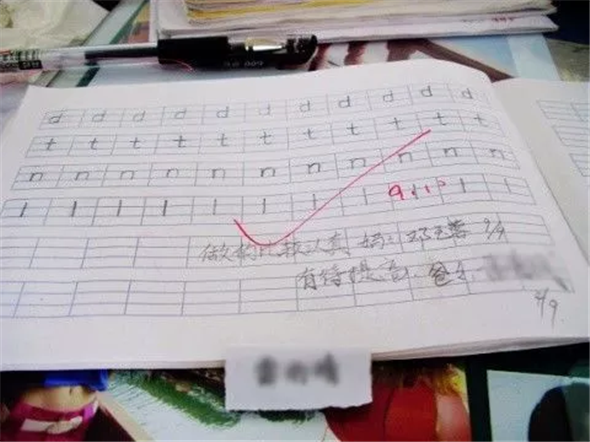 d d d d d d d d d d d
t t t t t t t t t t t
n n n n n n n n n n n
l l l l l l l l l l l
做的比较认真 妈: 邓玉蓉 9/9
有待提高. 爸:
9/9.